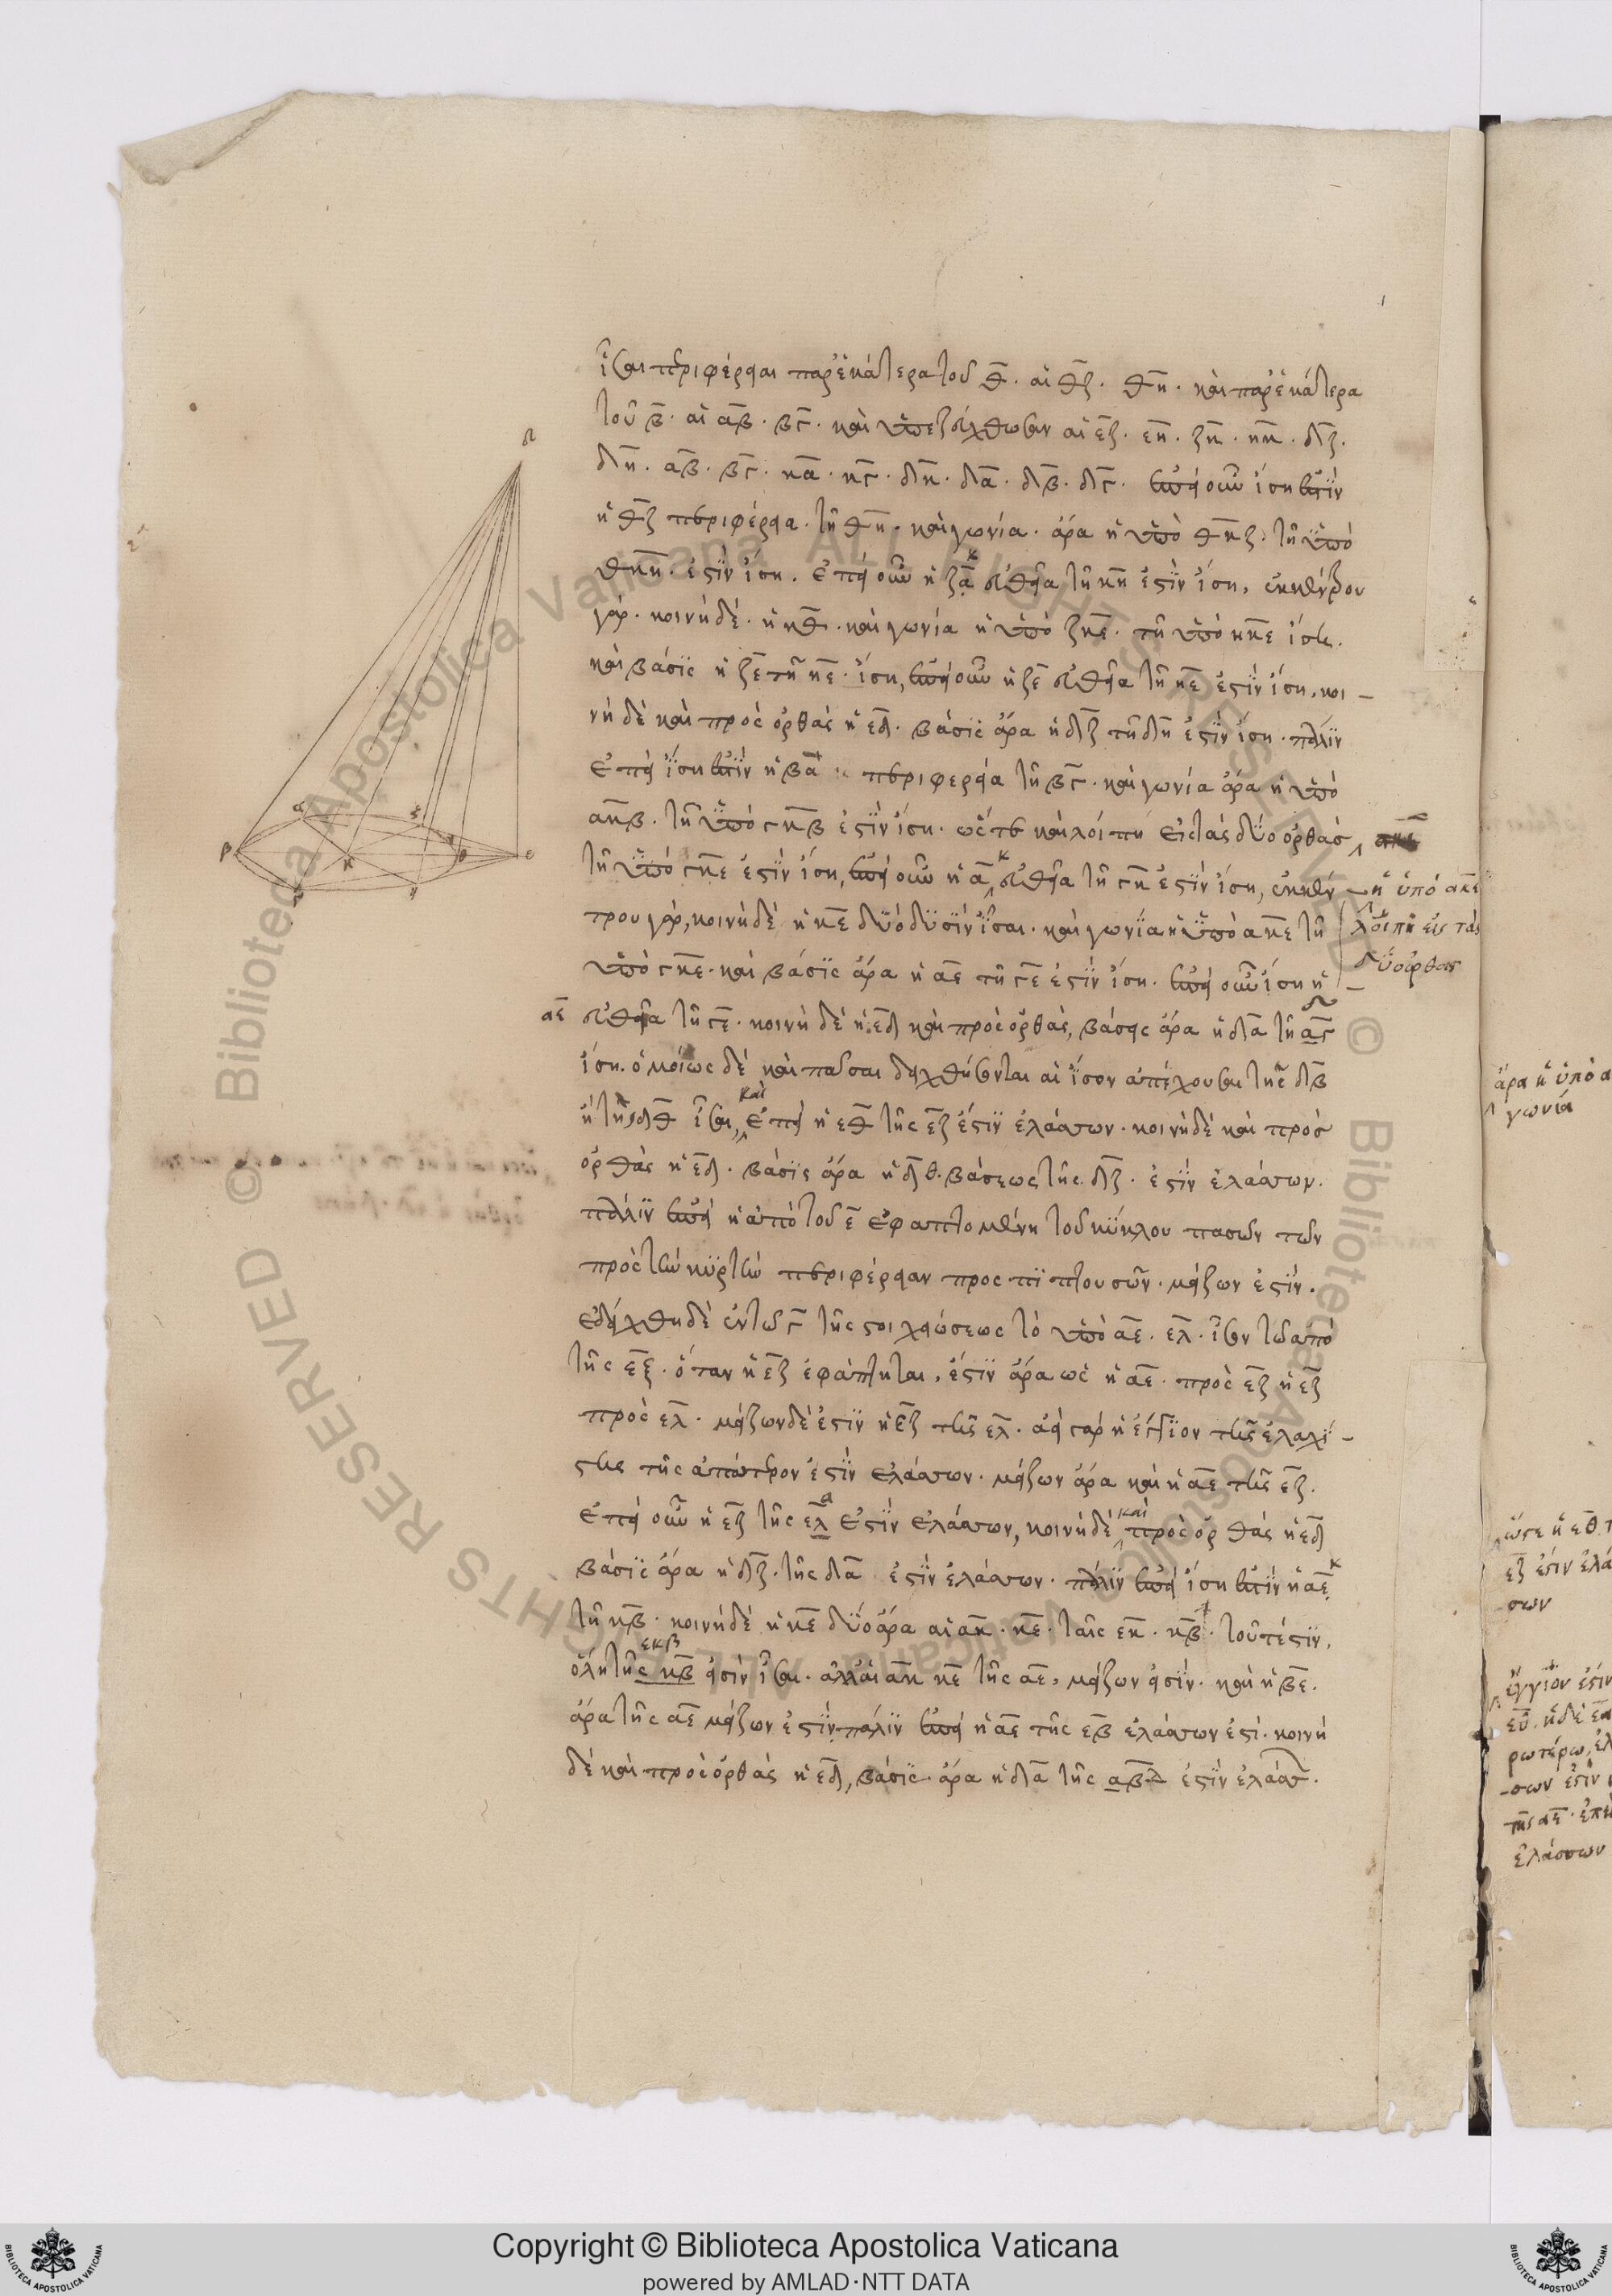 ἴσαι περιφέρειαι παρ' ἑκάτερα τοῦ θ̅. αἱ θ̅ζ̅. θ̅η̅. καὶ παρ' ἑκάτερα
τοῦ β̅. αἱ α̅β̅. β̅γ̅. καὶ ἐπεζεύχθωσαν αἱ ε̅ζ̅. ε̅η̅. ζ̅κ̅. η̅κ̅. δ̅ζ̅.
δ̅η̅. α̅β̅. β̅γ̅. κ̅α̅. κ̅γ̅. δ̅κ̅. δ̅α̅. δ̅β̅. δ̅γ̅. ἐπεὶ οὖν ἴση ἐστὶν
ἡ θ̅ζ̅ περιφέρεια τῇ θ̅η̅. καὶ γωνία. ἄρα ἡ ὑπὸ θ̅κ̅ζ̅. τῇ ὑπὸ
θ̅κ̅η̅. ἐστὶν ἴση. ἐπεὶ οὖν ἡ ζ̅κ̅ εὐθεῖα τῇ κ̅η̅ ἐστὶν ἴση, ἐκ κέντρου
γάρ. κοινὴ δὲ. ἡ κ̅θ̅. καὶ γωνία ἡ ὑπὸ ζ̅κ̅ε̅. τῇ ὑπὸ η̅κ̅ε̅ ἴση.
καὶ βάσις ἡ ζ̅ε̅ τῇ η̅ε̅. ἴση, ἐπεὶ οὖν ἡ ζ̅ε̅ εὐθεῖα τῇ η̅ε̅ ἐστὶν ἴση, κοι-
νὴ δὲ καὶ πρὸς ὀρθὰς ἡ ε̅δ̅. βάσις ἄρα ἡ δ̅ζ̅ τῇ δ̅η̅ ἐστὶν ἴση. πάλιν
ἐπεὶ ἴση ἐστὶν ἡ β̅α̅ περιφερεία τῇ β̅γ̅. καὶ γωνία ἄρα ἡ ὑπὸ
α̅κ̅β̅. τῇ ὑπὸ γ̅κ̅β̅ ἐστὶν ἴση. ὥστε καὶ λοιπὴ εἰς τὰς δύο ὀρθὰς
ἡ ὑπὸ α̅κ̅ε̅
λοιπῇ εἰς τὰς
δύο ὀρθὰς
τῇ ὑπὸ γ̅κ̅ε̅ ἐστὶν ἴση, ἐπεὶ οὖν ἡ α̅κ̅ εὐθεῖα τῇ γ̅κ̅ ἐστὶν ἴση, ἐκ κέν
τρου γάρ, κοινὴ δὲ ἡ κ̅ε̅ δύο δυσὶν ἴσαι. καὶ γωνία ἡ ὑπὸ α̅κ̅ε̅ τῇ
ὑπὸ γ̅κ̅ε̅. καὶ βάσις ἄρα ἡ α̅ε̅ τῇ γ̅ε̅ ἐστὶν ἴση. ἐπεὶ οὖν ἴση ἡ
α̅ε̅ εὐθεῖα τῇ γ̅ε̅. κοινὴ δὲ ἡ ε̅δ̅ καὶ πρὸς ὀρθὰς, βάσις ἄρα ἡ δ̅α̅ τῇ α̅γ̅
ἴση. ὁμοίως δὲ καὶ πᾶσαι δειχθήσονται αἱ ἴσον ἀπέχουσαι τῆς δ̅β̅
ἢ τῆς δ̅θ̅ ἴσαι, καὶ ἐπεὶ ἡ ε̅θ̅ τῆς ε̅ζ̅ ἐστὶν ἐλάσσων. κοινὴ δὲ καὶ πρὸς
ὀρθὰς ἡ ε̅δ̅. βάσις ἄρα ἡ δ̅θ̅. βάσεως τῆς δ̅ζ̅. ἐστὶν ἐλάσσων.
πάλιν ἐπεὶ ἡ ἀπὸ τοῦ ε̅ ἐφαπτομένη τοῦ κύκλου πασῶν τῶν
πρὸς τὼ κυρτὼ περιφέρειαν προσπιπτουσῶν. μείζων ἐστίν.
ἐδείχθη δὲ ἐν τῷ γ̅ τῆς στοιχειώσεως τὸ ὑπὸ α̅ε̅. ε̅λ̅. ἴσον τῷ ἀπὸ
τῆς ε̅ξ̅. ὅταν ἡ ε̅ζ̅ ἐφάπτηται. ἔστιν ἄρα ὡς ἡ α̅ε̅. πρὸς ε̅ζ̅ ἡ ε̅ζ̅
πρὸς ε̅λ̅. μείζων δὲ ἐστὶν ἡ ε̅ζ̅ τῆς ε̅λ̅. ἀεὶ γὰρ ἡ ἔγγιον τῆς ἐλαχί-
στης τῆς ἀπώτερον ἐστὶν ἐλάσσων. μείζων ἄρα καὶ ἡ α̅ε̅ τῆς ε̅ζ̅.
ἐπεὶ οὖν ἡ ε̅ζ̅ τῆς ε̅α̅ ἐστὶν ἐλάσσων, κοινὴ δὲ καὶ πρὸς ὀρθὰς ἡ ε̅δ̅
βάσις ἄρα ἡ δ̅ζ̅. τῆς δ̅α̅ ἐστὶν ἐλάσσων. πάλιν ἐπεὶ ἴση ἐστὶν ἡ α̅κ̅
τῇ κ̅β̅. κοινὴ δὲ ἡ κ̅ε̅ δύο ἄρα αἱ α̅κ̅. κ̅ε̅. ταῖς ε̅κ̅. κ̅β̅. τουτέστιν,
ὅλη τῆς εκβ κ̅β̅ εἰσὶν ἴσαι. ἀλλ' αἱ α̅κ̅ κ̅ε̅ τῆς α̅ε̅, μείζων εἰσίν. καὶ ἡ β̅ε̅.
ἄρα τῆς α̅ε̅ μείζων ἐστὶν. πάλιν ἐπεὶ ἡ α̅ε̅ τῆς ε̅β̅ ἐλάσσων ἐστί. κοινὴ
δὲ καὶ πρὸς ὀρθὰς ἡ ε̅δ̅, βάσις ἄρα ἡ δ̅α̅ τῆς α̅β̅ ἐστὶν ἐλάσσ.
ἄρα ἡ ὑπὸ α
γωνία
ὥστε ἡ εθ τ
εζ ἐστιν ἐλά
σων
ἔγγιον ἐστιν
ρωτέρω, ἐλ
σων ἐστὶν
τῆς αε. ἐπεὶ
ἐλάσσων
© Biblioteca Apostolica Vicana ALL RIGHTS RESERVED
Copyright © Biblioteca Apostolica Vaticana
powered by AMLAD·NTT DATA